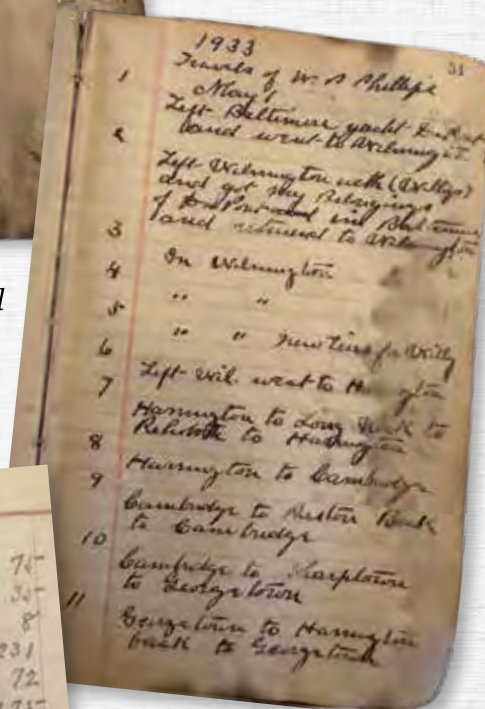 1933
51
Travels of W. S. Phillips
May
1 Left Baltimore yacht
and went to Wilmington
2 Left Wilmington with (Willys)
and got my Belongings
of and in Baltimore
and returned to Wilmington
3
4 In Wilmington
5 " "
" " new tires for Willy
6
7 Left Wil. went to Harrington
Harrington to Long Neck to
8 Rehoboth to Harrington
9 Harrington to Cambridge
Cambridge to Back
10 to Cambridge
Cambridge to Sharptown
to Georgetown
11 Georgetown to Harrington
back to Georgetown
d
75
30
8
231
72